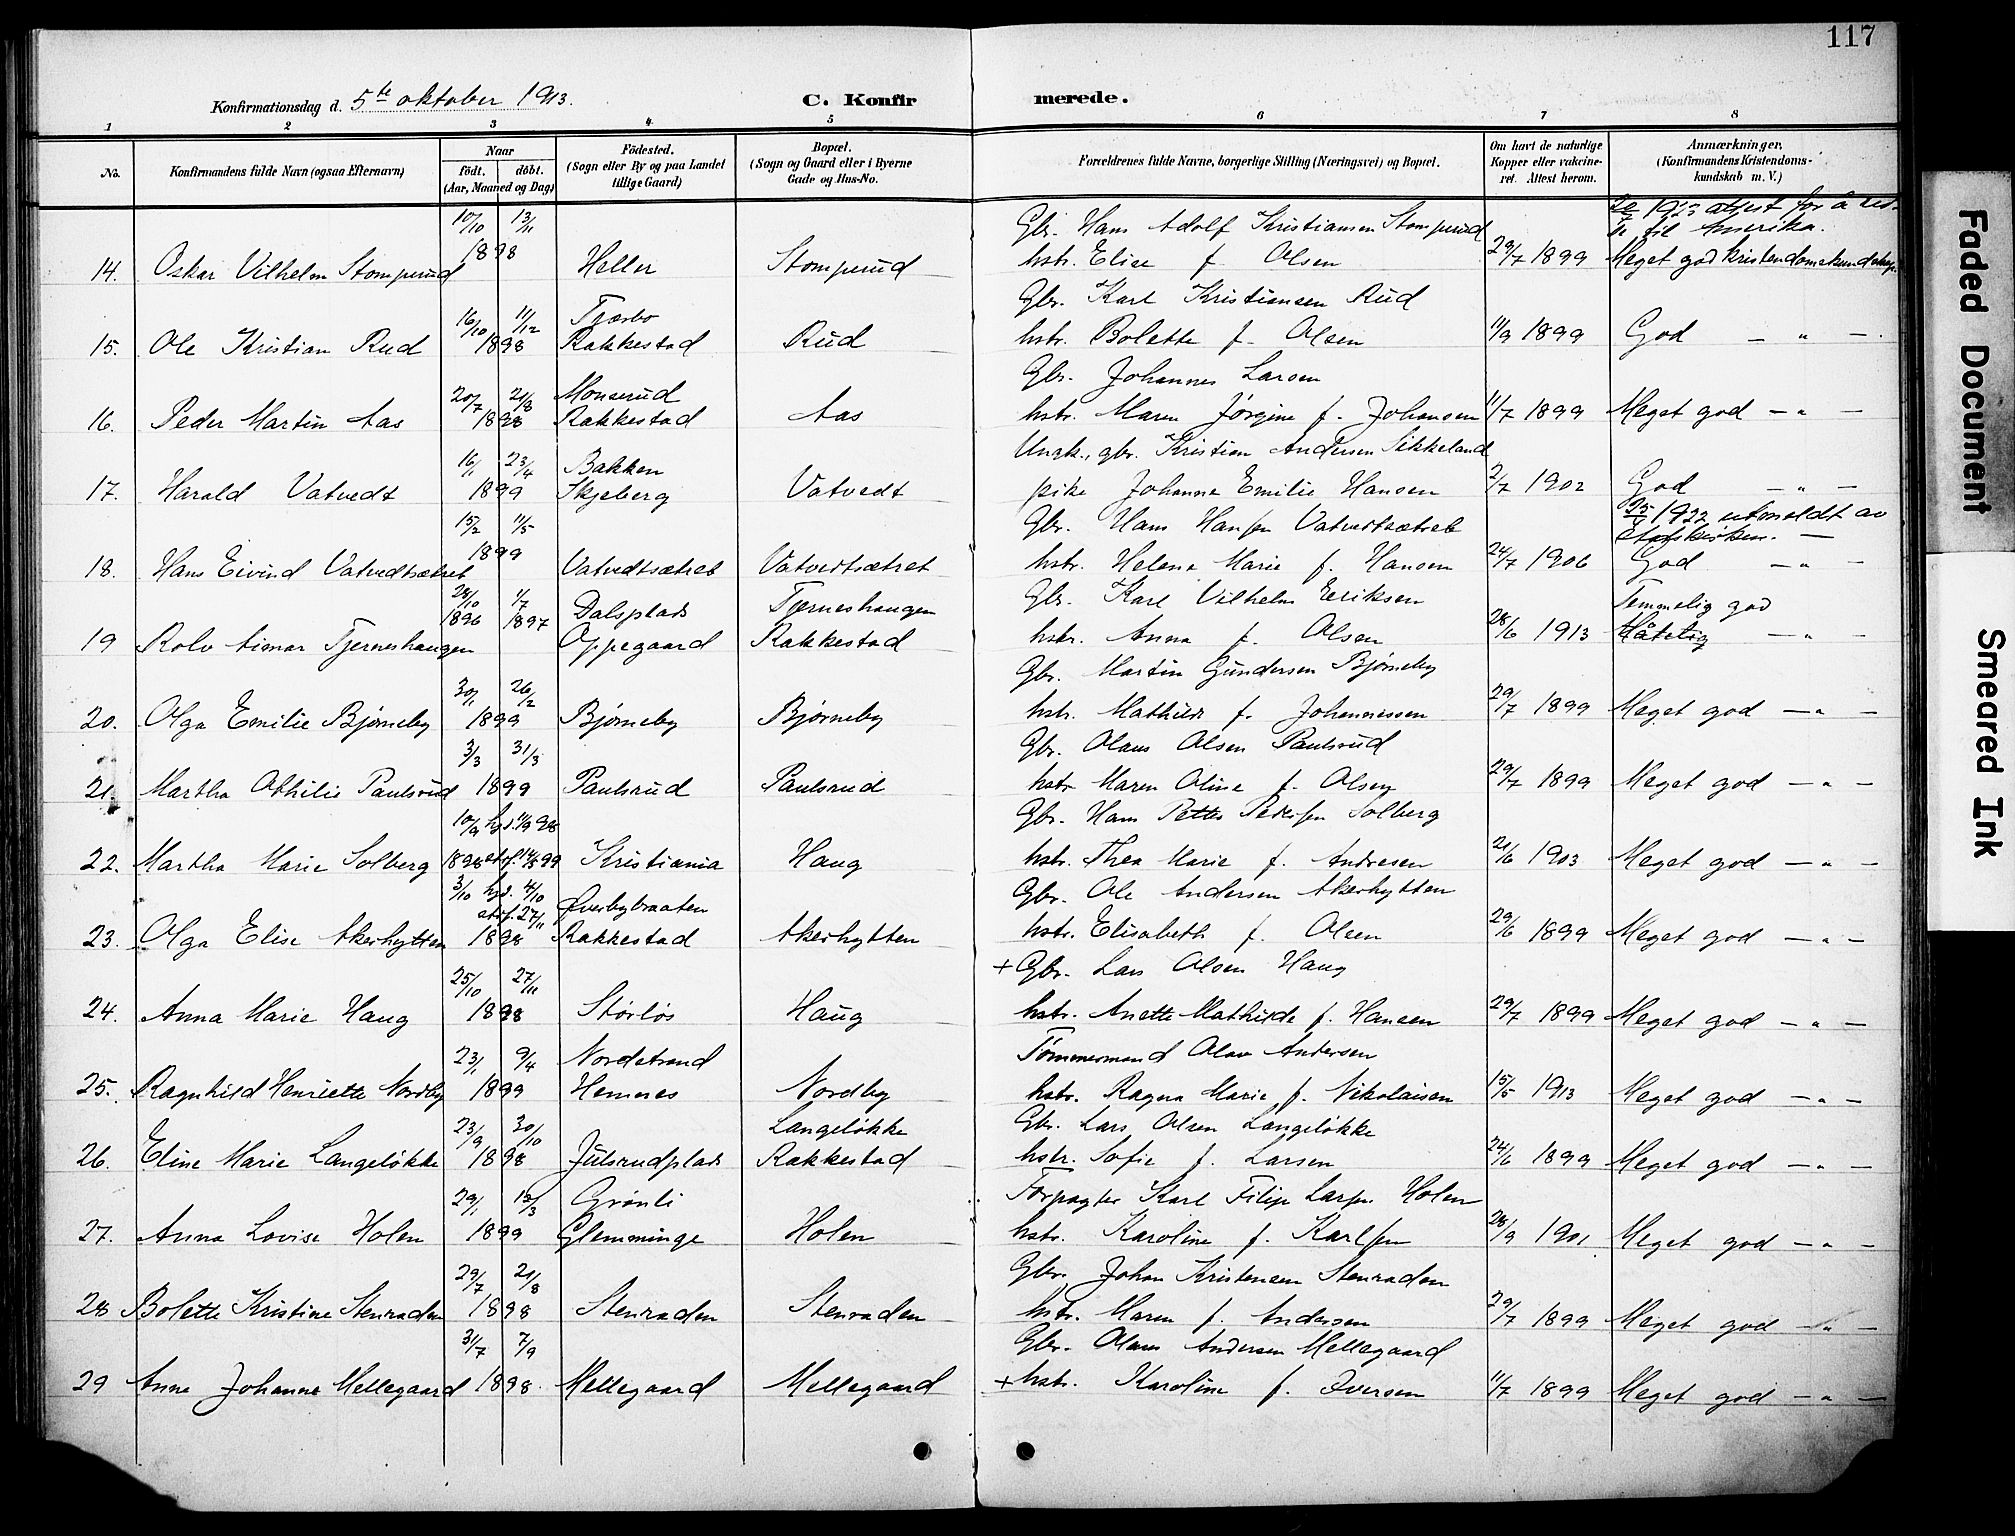 117
Konfirmationsdag d. 5te oktober 1913.
C. Konfirmerede.
1 2 3 4 5 6 7 8
No. Konfirmandens fulde Navn (ogsaa Efternavn) Naar födt. döbt. (Aar, Maaned og Dag) Födested. (Sogn eller By og paa Landet tillige Gaard) Bopæl. (Sogn og Gaard eller i Byerne Gade og Hus-No. Forældrenes fulde Navne, borgerlige Stilling (Næringsvei) og Bopæl. Om havt de naturlige Kopper eller vakcineret. Attest herom. Anmærkninger. (Konfirmandens Kristendomskundskab m. V.)
10/10 13/11 Gbr. Hans Adolf Kristiansen Stomperud 1923 attest for å
til Amerika.
14. Oskar Vilhelm Stomperud 1898 Heller Stomperud hstr. Elise f. Olsen 29/7 1899 Meget god kristendomskundskap.
Gbr. Karl Kristiansen Rud
16/10 11/12 Tjærbo
15. Ole Kristian Rud 1898 Rakkestad Rud hstr. Bolette f. Olsen 11/9 1899 God — " —
Gbr. Johannes Larsen
20/7 21/8 Monserud
16. Peder Martin Aas 1898 Rakkestad Aas hstr. Maren Jørgine f. Johansen 11/7 1899 Meget god — " —
Ungk., gbr. Kristian Andersen Sikkeland
16/1 23/4 Bakken
17. Harald Vatvedt 1899 Skjeberg Vatvedt pike Johanne Emilie Hansen 2/7 1902 God — " —
15/2 11/5 Gbr. Hans Hansen Vatvedtsætret 1922 utmeldt av
statskirken. —
18. Hans Eivind Vatvedtsætret 1899 Vatvedtsætret Vatvedtsætret hstr. Helena Marie f. Hansen 24/7 1906 God — " —
28/10 1896 1/7 1897 Dalsplads Tjerneshaugen Gbr. Karl Vilhelm Eriksen Temmelig god
19 Rolv Aimar Tjerneshaugen Oppegaard Rakkestad hstr. Anna f. Olsen 28/6 1913 Måtelig — " —
Gbr. Martin Gundersen Bjørneby
30/1 26/2
20. Olga Emilie Bjørneby 1899 Bjørneby Bjørneby hstr. Mathilde f. Johannessen 29/7 1899 Meget god — " —
3/3 31/3 Gbr. Olaus Olsen Paulsrud
21. Martha Othilie Paulsrud 1899 Paulsrud Paulsrud hstr. Maren Oline f. Olsen 29/7 1899 Meget god — " —
10/9 hjd. 11/9 98 Gbr. Hans Petter Pedersen Solberg
22. Martha Marie Solberg 1898 stf. 99 Kristiania Haug hstr. Thea Marie f. Andresen 21/6 1903 Meget god — " —
3/10 hjd. 4/10 stf. 27/11 Øverbybraaten Gbr. Ole Andersen Akerhytten
23. Olga Elise Akerhytten 1898 Rakkestad Akerhytten hstr. Elisabeth f. Olsen 29/6 1899 Meget god — " —
+ Gbr. Lars Olsen Haug
25/10 27/11
24. Anna Marie Haug 1898 Størløs Haug hstr. Anette Mathilde f. Hansen 29/7 1899 Meget god — " —
23/1 9/4 Nordstrand Tømmermand Olav Andersen
25. Ragnhild Henriette Nordby 1899 Hemnes Nordby hstr. Ragna Marie f. Nikolaisen 15/5 1913 Meget god — " —
23/9 30/10 Langeløkke Gbr. Lars Olsen Langeløkke
26. Eline Marie Langeløkke 1898 Julsrudplads Rakkestad hstr. Sofie f. Larsen 24/6 1899 Meget god — " —
29/1 12/3 Grønli Forpagter Karl Filip Larsen Holen
27. Anna Lovise Holen 1899 Glemminge Holen hstr. Karoline f. Karlsen 28/9 1901 Meget god — " —
29/7 21/8 Gbr. Johan Kristensen Stenraden
28 Bolette Kristine Stenraden 1898 Stenraden Stenraden hstr. Maren f. Andersen 29/7 1899 Meget god — " —
31/7 7/9 Gbr. Olaus Andersen Mellegaard
29 Anna Johanne Mellegaard 1898. Mellegaard Mellegaard + hstr. Karoline f. Iversen 11/7 1899 Meget god — " —
Faded Document
Smeared Ink